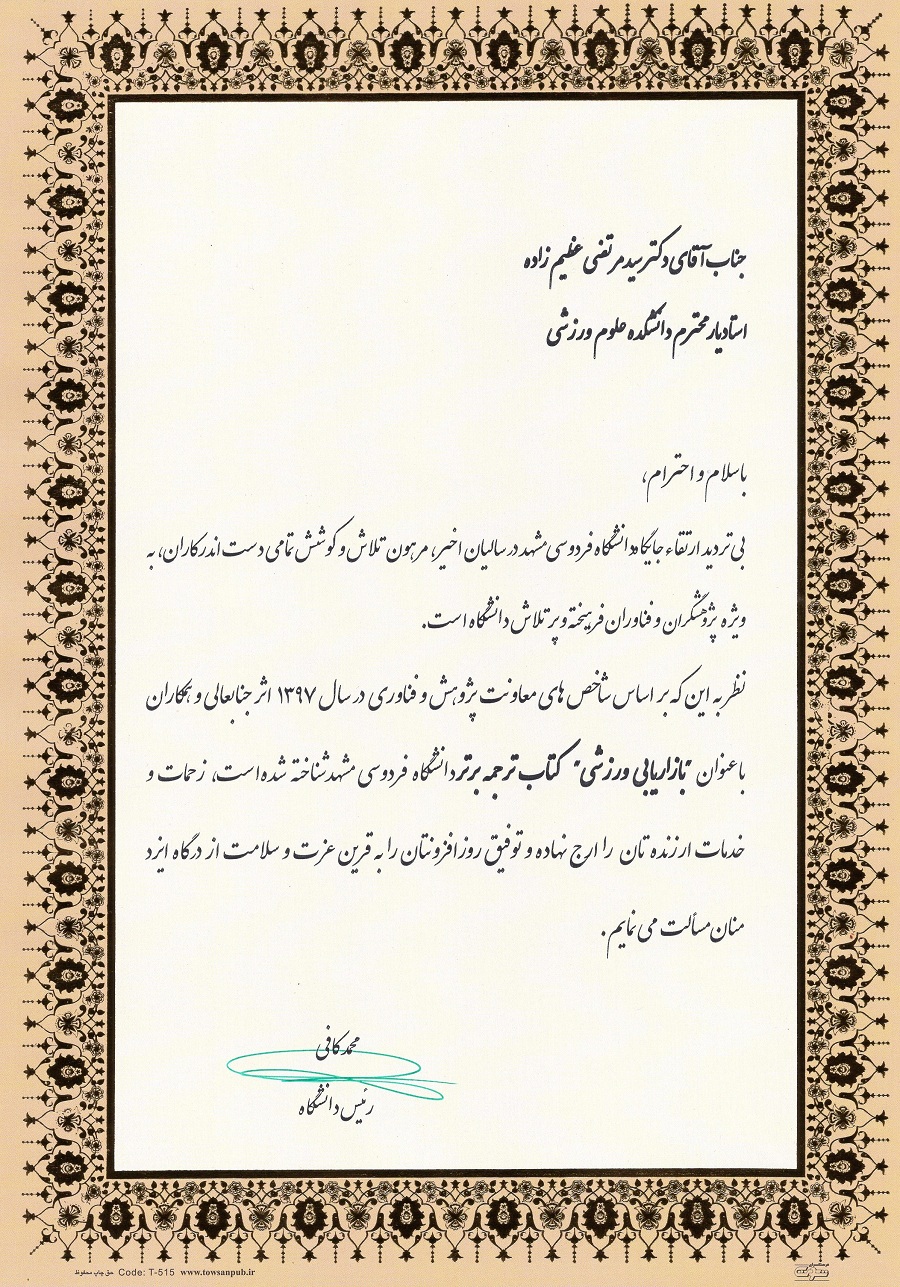 جناب آقای دکتر سید مرتضی عظیم زاده
استادیار محترم دانشکده علوم ورزشی
با سلام و احترام،
بی تردید ارتقاء جایگاه دانشگاه فردوسی مشهد در سالیان اخیر، مرهون تلاش و کوشش تمامی دست اندرکاران، به
ویژه پژوهشگران و فناوران فرهیخته و پر تلاش دانشگاه است.
نظر به این که بر اساس شاخص های معاونت پژوهش و فناوری در سال ۱۳۹۷ اثر جنابعالی و همکاران
با عنوان "بازاریابی ورزشی" کتاب ترجمه برتر دانشگاه فردوسی مشهد شناخته شده است، زحمات و
خدمات ارزنده تان را ارج نهاده و توفیق روز افزونتان را به قرین عزت و سلامت از درگاه ایزد
منان مسألت می نمایم.
محمد کافی
رئیس دانشگاه
حق چاپ محفوظ Code: T-515 www.towsanpub.ir